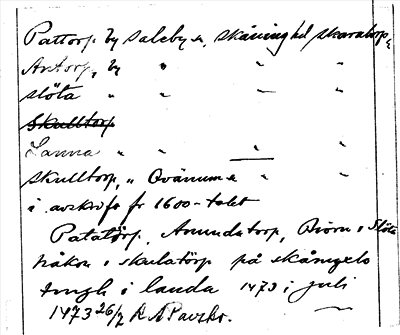 Pattorp by Saleby s. Skåning hd Skaratorp,
Antorp, by " " "
Slöta " " "
Skulltorp
Lanna " " "
Skulltorp, " Ovänum s " "
i avskrift fr 1600-talet
Patatörp, Amundatorp, Biörn i Slöta
Håkon i Skulatörp på Skånyels
tingh i landa 1473 i juli
1473 26/7 RAPavskr.